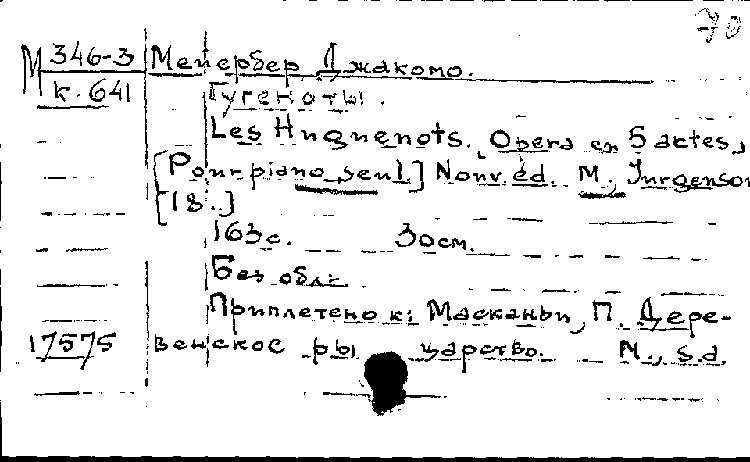 70
М 346-3 Мейербер, Джакомо.
к. 641 Гугеноты.
Les Huguenots. Opera en 5 actes,
[Pour piano seul.] Nouv. éd. M., Jurgenson
[18..]
163 с. 30 см.
Без обл.
Приплетено к: Масканьи, П. Дере-
17575 венское ры царство. М., s.a.